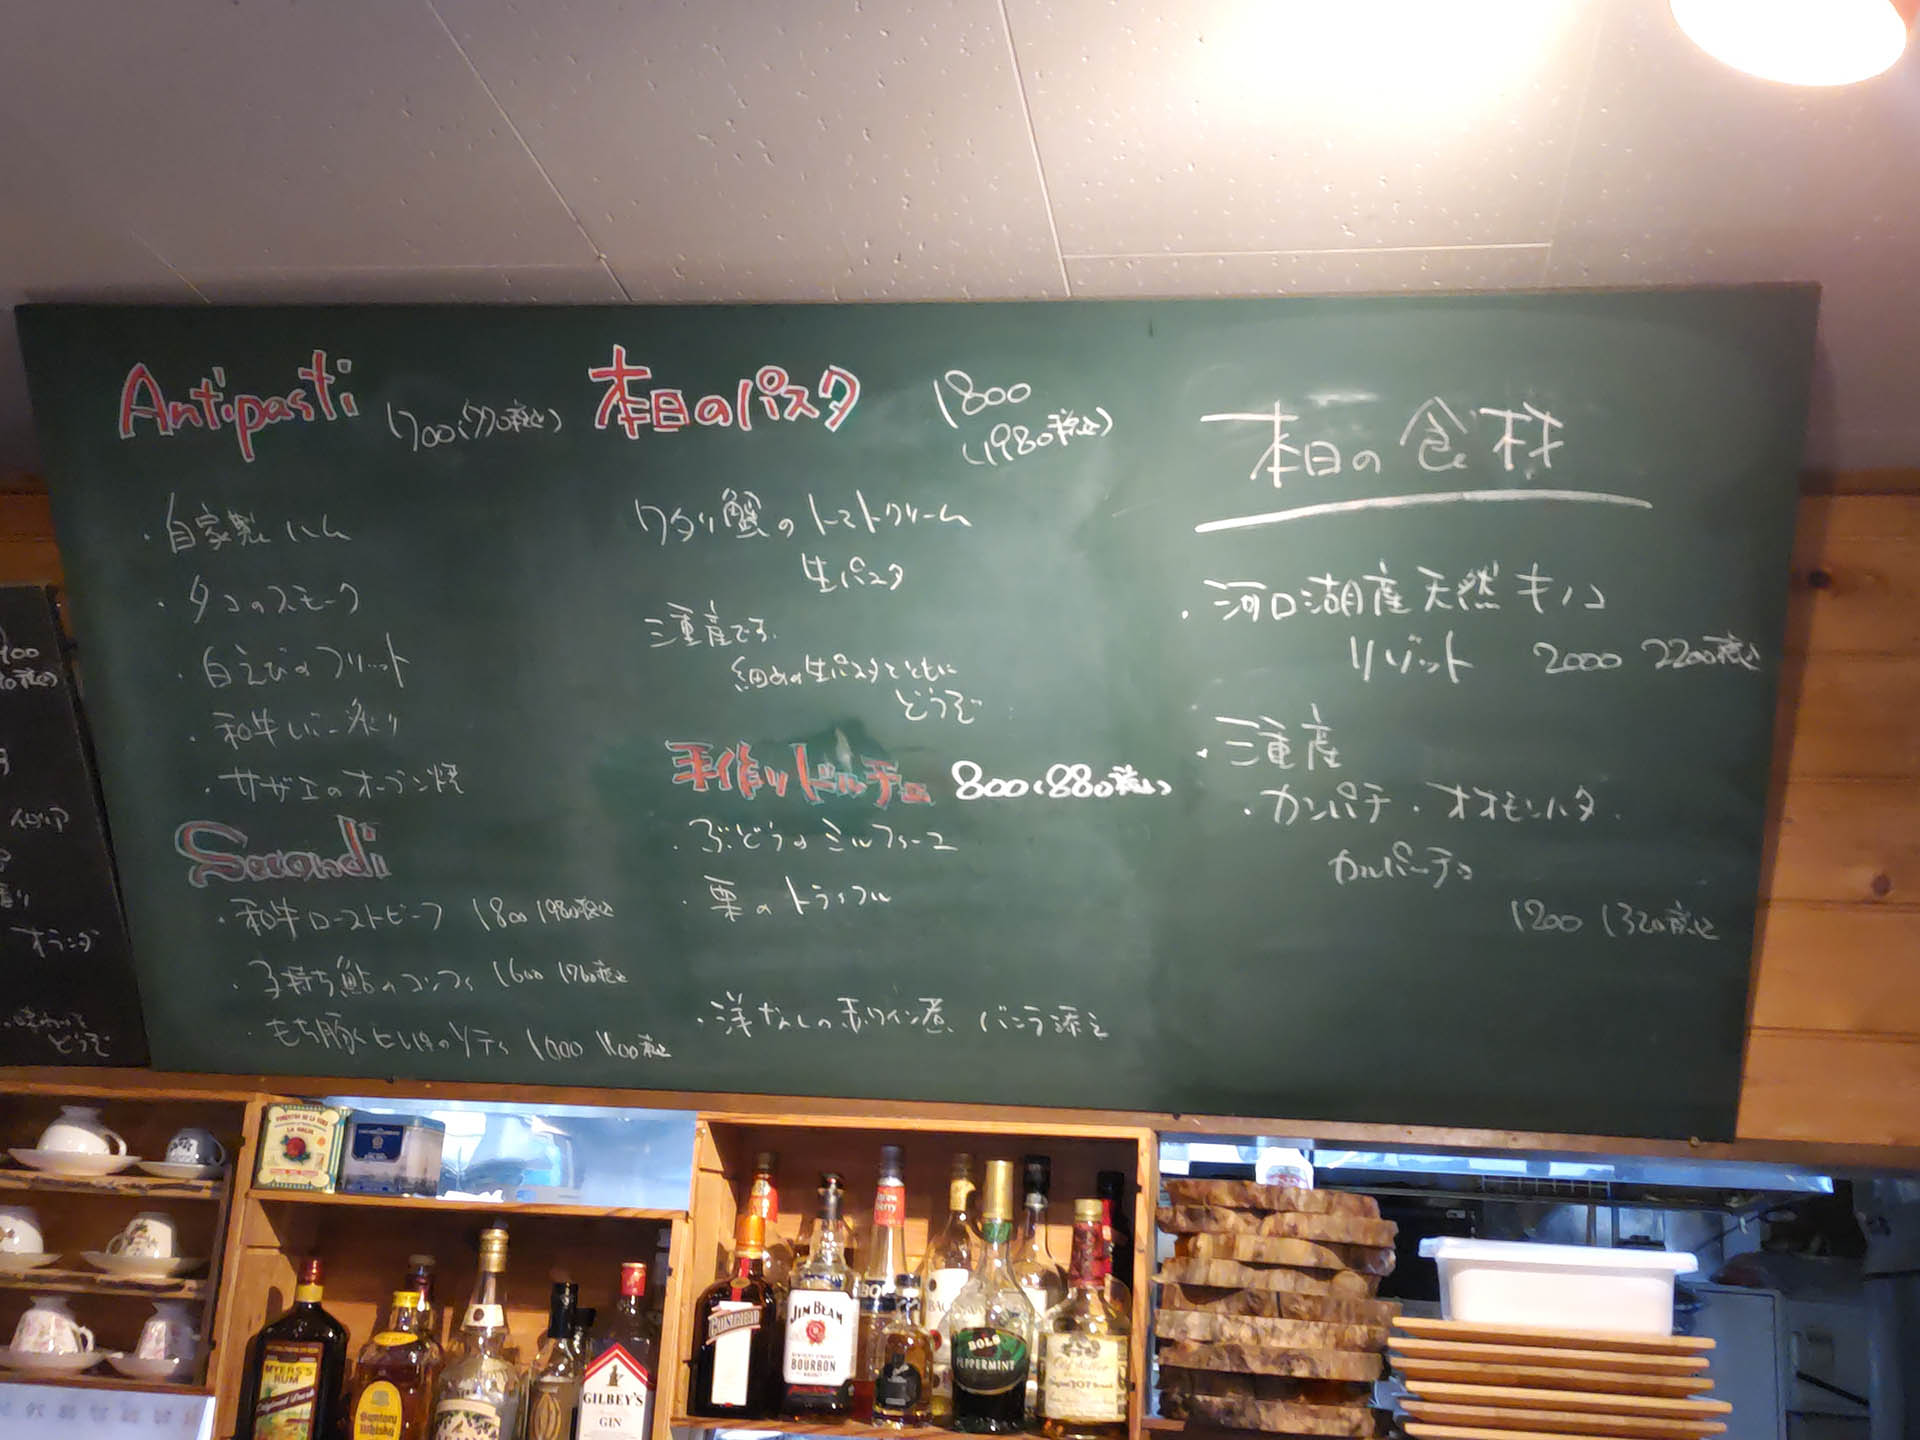 Antipasti 700(770税込)
・自家製ハム
・タコのスモーク
・白えびのフリット
・和牛レバー炙り
・サザエのオーブン焼
Secondi
・和牛ローストビーフ 1800 1980税込
・子持ち鮎のコンフィ 1600 1760税込
・もち豚ヒレ肉のソテー 1000 1100税込
本日のパスタ 1800
(1980税込)
ワタリ蟹のトマトクリーム
生パスタ
三重産です。
細めの生パスタとともに
どうぞ
手作りドルチェ 800(880税込)
・ぶどうのミルフィーユ
・栗のトライフル
・洋なしの赤ワイン煮 バニラ添え
本日の食材
・河口湖産天然キノコ
リゾット 2000 2200税込
・三重産
・カンパチ・オオモンハタ
カルパッチョ
1200 1320税込
オランダ
どうぞ
MYERS'S
RUM
Suntory
Whisky
GILBEY'S
GIN
COINTREAU
JIM BEAM
BOURBON
BOLS
PEPPERMINT